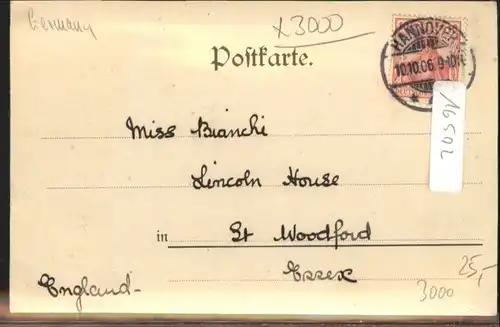 Germany
x 3000
HANNOVER
Postkarte.
10.10.06 9-10
16502
Miss Bianchi
Lincoln House
in St Woodford
Essex
England-
3000
25,-